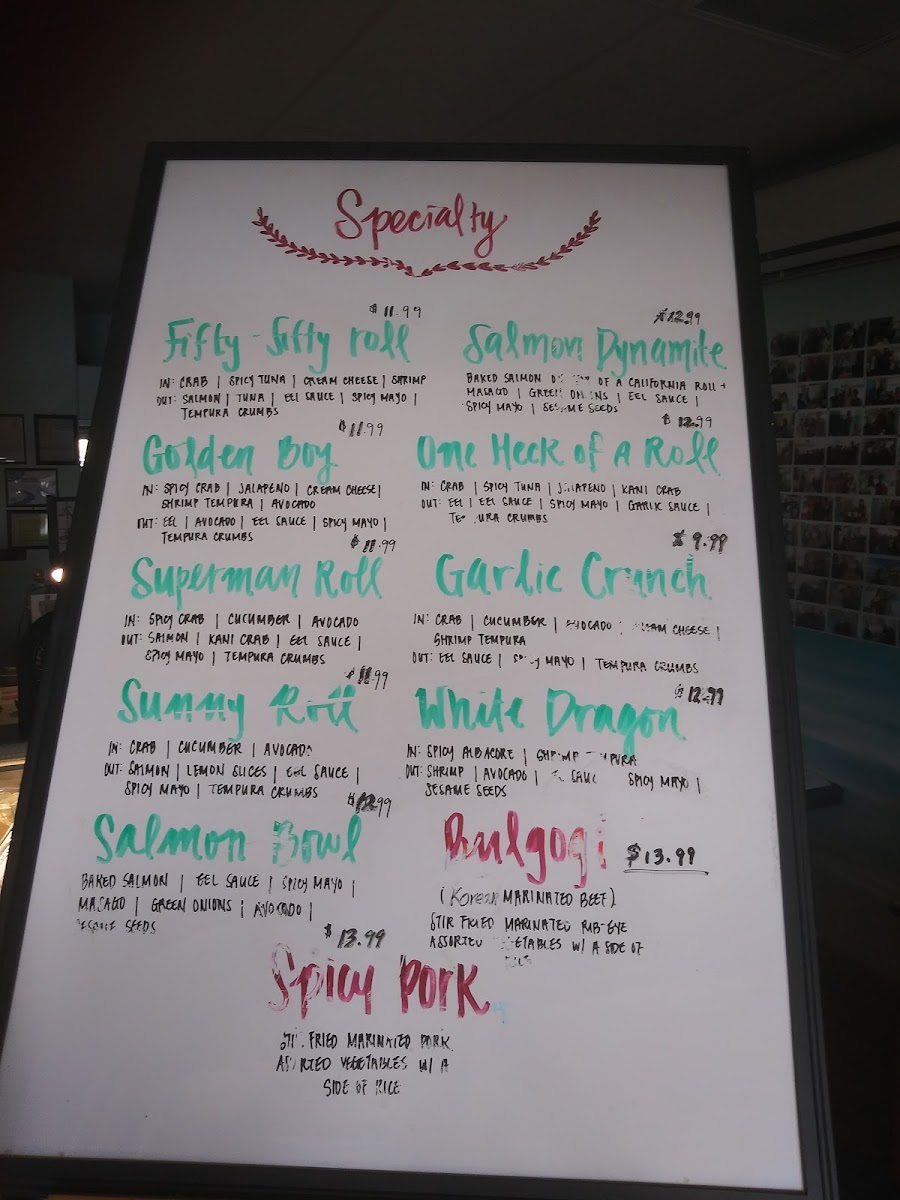 Specialty
$ 11.99
Fifty-fifty roll
IN: CRAB | SPICY TUNA | CREAM CHEESE | SHRIMP
OUT: SALMON | TUNA | EEL SAUCE | SPICY MAYO |
TEMPURA CRUMBS
$ 11.99
Golden Boy
IN: SPICY CRAB | JALAPENO | CREAM CHEESE |
SHRIMP TEMPURA | AVOCADO
OUT: EEL | AVOCADO | EEL SAUCE | SPICY MAYO |
TEMPURA CRUMBS
$ 11.99
Superman Roll
IN: SPICY CRAB | CUCUMBER | AVOCADO
OUT: SALMON | KANI CRAB | EEL SAUCE |
SPICY MAYO | TEMPURA CRUMBS
$ 11.99
Sunny Roll
IN: CRAB | CUCUMBER | AVOCADO
OUT: SALMON | LEMON SLICES | EEL SAUCE |
SPICY MAYO | TEMPURA CRUMBS
$12.99
Salmon Bowl
BAKED SALMON | EEL SAUCE | SPICY MAYO |
MASAGO | GREEN ONIONS | AVOCADO |
SEEDS
$12.99
Salmon Dynamite
BAKED SALMON OF A CALIFORNIA ROLL +
MASAGO | GREEN ONIONS | EEL SAUCE |
SPICY MAYO | SESAME SEEDS
$ 12.99
One Heck of A Roll
IN: CRAB | SPICY TUNA | JALAPENO | KANI CRAB
OUT: EEL | EEL SAUCE | SPICY MAYO | GARLIC SAUCE |
TEMPURA CRUMBS
$ 9.99
Garlic Crunch
IN: CRAB | CUCUMBER | AVOCADO | CREAM CHEESE |
SHRIMP TEMPURA
OUT: EEL SAUCE | SPICY MAYO | TEMPURA CRUMBS
$ 12.99
White Dragon
IN: SPICY ALBACORE | SHRIMP TEMPURA
OUT: SHRIMP | AVOCADO | SAUCE SPICY MAYO |
SESAME SEEDS
Bulgogi $13.99
(Korean MARINATED BEEF)
STIR FRIED MARINATED RIB-EYE
ASSORTED VEGETABLES W/ A SIDE OF
$ 13.99
Spicy Pork
FRIED MARINATED PORK
ASSORTED VEGETABLES W/ A
SIDE OF RICE